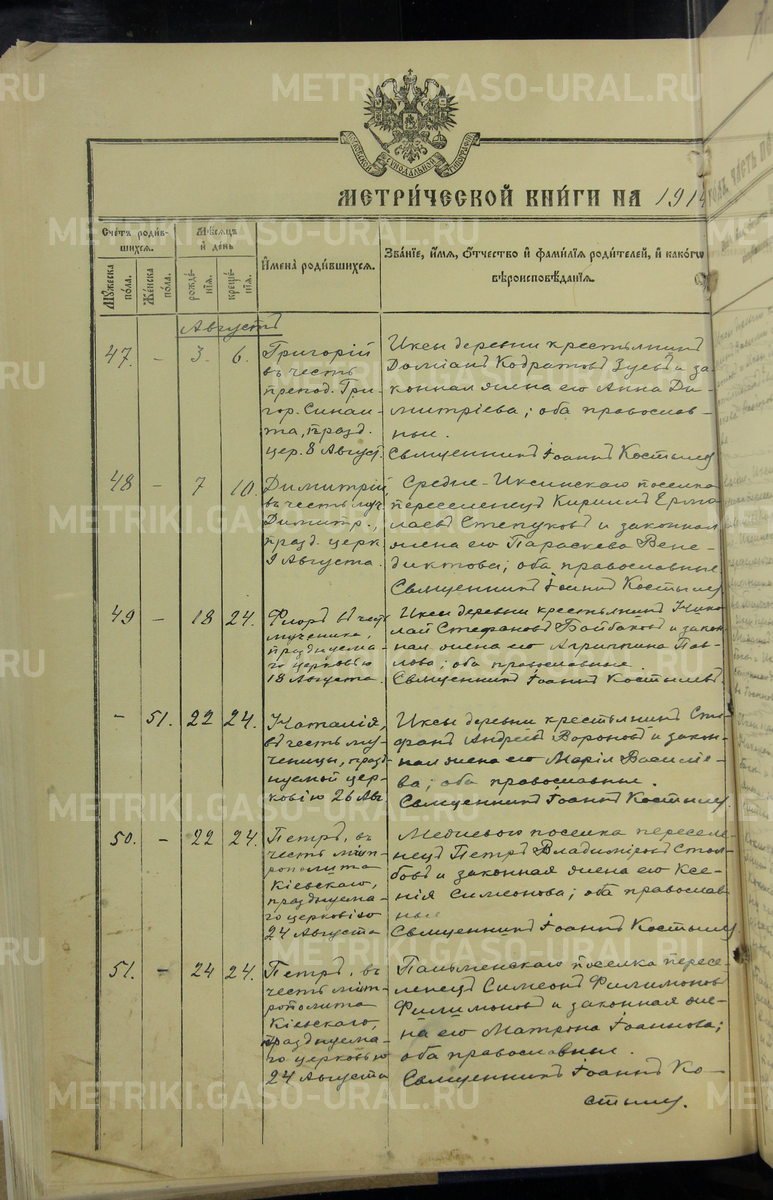 METRIKI.GASO-URAL.RU
МЕТРИ́ЧЕСКОЙ КНИ́ГИ НА 1914
Сче́тъ роди́в-
шихся.
Мѣ́сяцъ
и̂ день
И̂мена̀ роди́вшихся.
Зва́нїе, и̂́мя, о̂́тчество и̂ фами́лїя роди́телей, и̂ како́гѡ
вѣроисповѣ́данїя.
Му́жеска
по́ла.
Же́нска
по́ла.
рожде́-
нїя.
креще́-
нїя.
Августъ
47. - 3. 6.
Григорій
въ честь
препод. Гри-
гор. Синаи-
та, празд.
цер. 8 Август.
Иксы деревни крестьянинъ
Доміанъ Кодратовъ Зуевъ и за-
конная жена его Анна Ди-
митріева; оба православ-
ные.
Священникъ Іоаннъ Костылев
48 - 7 10.
Димитрій,
въ честь муч
Димитр.,
празд. церк
9 Августа.
Средне-Иксинскаго поселка
переселенецъ Кириллъ Ермо-
лаевъ Степуковъ и законная
жена его Параскева Вене-
диктова; оба православные
Священникъ Іоаннъ Костылев
49 - 18 24.
Флоръ въ честь
мученика,
празднуема-
го церковью
18 Августа.
Иксы деревни крестьянинъ Нико-
лай Стефановъ Байбаковъ и закон-
ная жена его Агриппина Пав-
лова; оба православные.
Священникъ Іоаннъ Костылевъ
- 51. 22 24.
Наталія,
въ честь му-
ченицы, празд-
нуемой цер-
ковію 26 Авг
Иксы деревни крестьянинъ Сте-
фанъ Андреевъ Вороновъ и закон-
ная жена его Марія Василіе-
ва; оба православные.
Священникъ Іоаннъ Костылев.
50. - 22 24.
Петръ, въ
честь мит-
рополита
Кіевскаго,
празднуема-
го церковію
24 Августа
поселка переселе-
нецъ Петръ Владиміровъ Стол-
бовъ и законная жена его Ксе-
нія Симеонова; оба православ-
ные
Священникъ Іоаннъ Костылев
51. - 24 24.
Петръ, въ
честь мит-
рополита
Кіевскаго,
празднуема-
го церковью
24 Августа
поселка пересе-
ленецъ Симеонъ Филимоновъ
Филимоновъ и законная же-
на его Матрона Іоаннова;
оба православные.
Священникъ Іоаннъ Ко-
стылев.